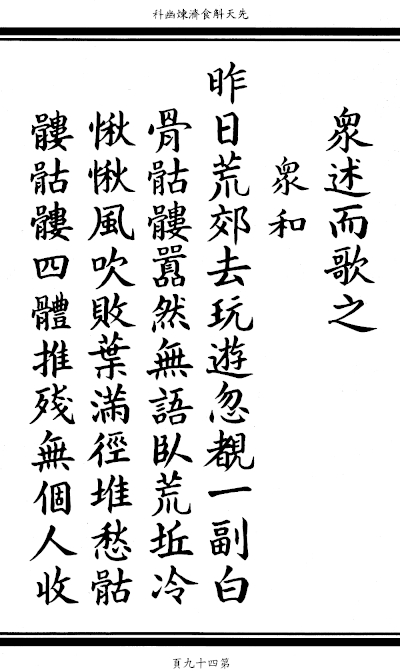 先天斛食濟煉幽科
衆述而歌之
衆和
昨日荒郊去玩遊忽覩一副白
骨骷髏囂然無語臥荒坵冷
愀愀風吹敗葉滿徑堆愁骷
髏骷髏四體推殘無個人收
第四十九頁